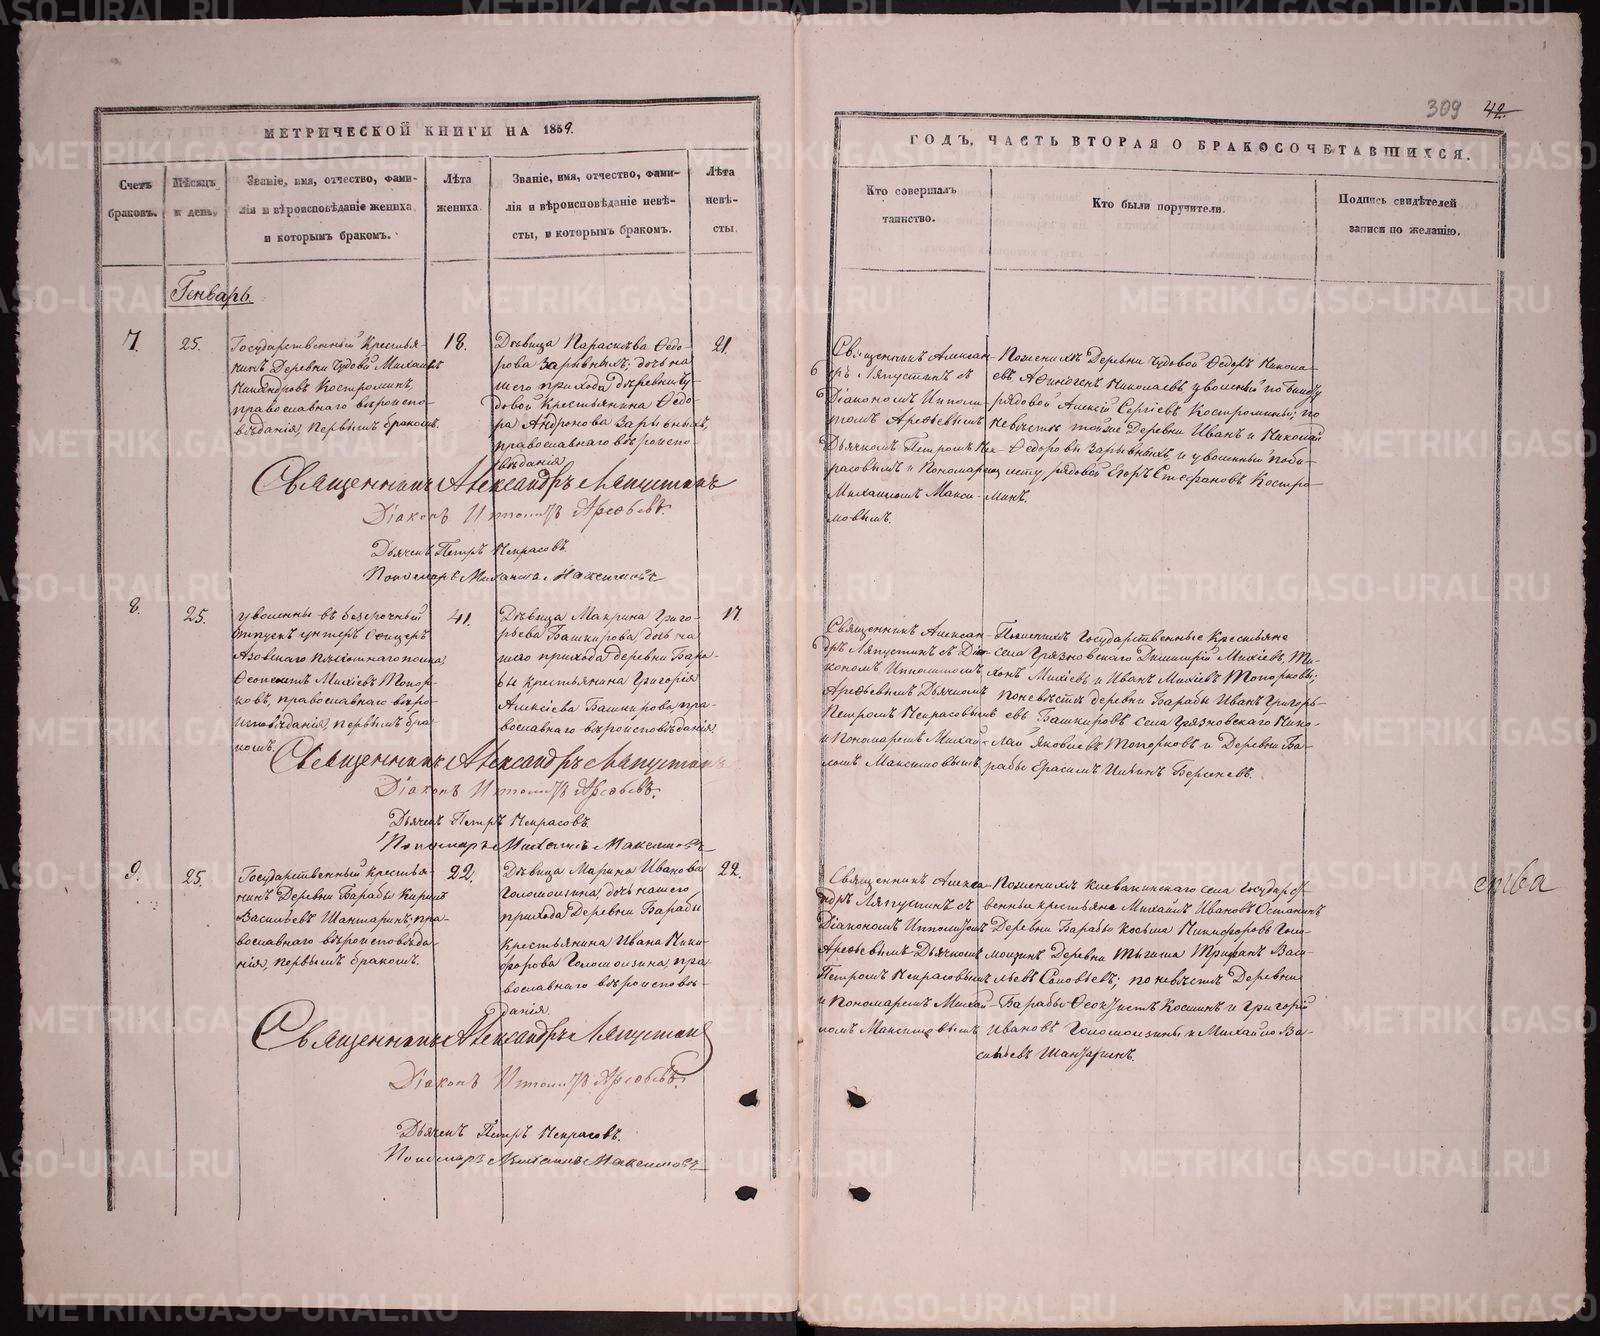 309 42.
МЕТРИЧЕСКОЙ КНИГИ НА 1859.
ГОДЪ, ЧАСТЬ ВТОРАЯ О БРАКОСОЧЕТАВШИХСЯ.
Счетъ
браковъ.
Мѣсяцъ
и день.
Званіе, имя, отчество, фами-
лія и вѣроисповѣданіе жениха
и которымъ бракомъ.
Лѣта
жениха.
Званіе, имя, отчество, фами-
лія и вѣроисповѣданіе невѣ-
сты, и которымъ бракомъ.
Лѣта
невѣ-
сты.
Кто совершалъ
таинство.
Кто были поручители.
Подпись свидѣтелей
записи по желанію.
Генварь.
7.
25.
Государственный Крестья-
нинъ Деревни Чудовой Михаилъ
Никандровъ Костроминъ,
православнаго вѣроиспо-
вѣданія, первымъ бракомъ.
18.
Дѣвица Параскѣва Ѳедо-
рова Зарывныхъ, дочь на
шего прихода Деревни Чу-
довой Крестьянина Ѳедо-
ра Андронова Зарывныхъ,
православнаго вѣроиспо-
вѣданія.
21.
Священникъ Алексан-
дръ Ляпустинъ съ
Діакономъ Ипполи-
томъ Арефьевымъ
Дьячкомъ Петромъ Не-
красовымъ и Пономаремъ
Михаиломъ Макси-
мовымъ.
По женихѣ Деревни Чудовой Ѳедоръ Никола-
евъ Аѳиногенъ Николаевъ, уволенный по билету
рядовой Алексій Сергіевъ Костромины; по
невѣстѣ тойже Деревни Иванъ и Николай
Ѳедоровы Зарывныхъ и уволенный по би-
лету рядовой Егоръ Стефановъ Костро-
минъ.
Священникъ Александръ Ляпустинъ
Діаконъ Ипполитъ Арефьевъ.
Дьячекъ Петръ Некрасовъ.
Пономарь Михаилъ Максимовъ
8.
25.
Уволенный въ безсрочный
отпускъ унтеръ офицеръ
Азовскаго пѣхотнаго полка
Ѳеоктистъ Михіевъ Топор-
ковъ, православнаго вѣро-
исповѣданія, первымъ бра-
комъ.
41.
Дѣвица Макрина Григо-
рьева Башкирова, дочь на
шего прихода деревни Бара-
бы крестьянина Григорія
Алексіева Башкирова, пра-
вославнаго вѣроисповѣданія
17.
Священникъ Алексан-
дръ Ляпустинъ съ Діа-
кономъ Ипполитомъ
Арефьевымъ Дьячкомъ
Петромъ Некрасовымъ
и Пономаремъ Михаи-
ломъ Максимовымъ
По женихѣ Государственные Крестьяне
села Грязновскаго Димитрій Михіевъ, Ти-
хонъ Михіевъ и Иванъ Михіевъ Топорковы;
по невѣстѣ деревни Барабы Иванъ Григорь-
евъ Башкировъ села Грязновскаго Нико-
лай Яковлевъ Топорковъ и Деревни Ба-
рабы Герасимъ Ильинъ Берсеневъ.
Священникъ Александръ Ляпустинъ
Діаконъ Ипполитъ Арефьевъ.
Дьячекъ Петръ Некрасовъ.
Пономарь Михаилъ Максимовъ
9.
25.
Государственный крестья-
нинъ Деревни Барабы Кирилъ
Васильевъ Шантаринъ, пра-
вославнаго вѣроисповѣда-
нія, первымъ бракомъ.
22.
Дѣвица Марина Иванова
Голомолзина, дочь нашего
прихода Деревни Барабы
Крестьянина Ивана Ники-
форова Голомолзина, пра-
вославнаго вѣроисповѣ-
данія.
22.
Священникъ Алекса-
ндръ Ляпустинъ съ
Діакономъ Ипполитомъ
Арефьевымъ Дьячкомъ
Петромъ Некрасовымъ
и Пономаремъ Михаи-
ломъ Максимовымъ
По женихѣ Клевакинскаго села Государст-
венные крестьяне Михаилъ Ивановъ Останинъ
Деревни Барабы Косьма Никифоровъ Голо-
молзинъ Деревни Тыгиша Трифанъ Васи-
льевъ Соловьевъ; по невѣстѣ Деревни
Барабы Ѳеоктистъ Косминъ и Григорій
Ивановъ Голомолзины и Михайло Ва-
сильевъ Шантаринъ.
ства
Священникъ Александръ Ляпустинъ
Діаконъ Ипполитъ Арефьевъ.
Дьячекъ Петръ Некрасовъ.
Пономарь Михаилъ Максимовъ
METRIKI.GASO-URAL.RU